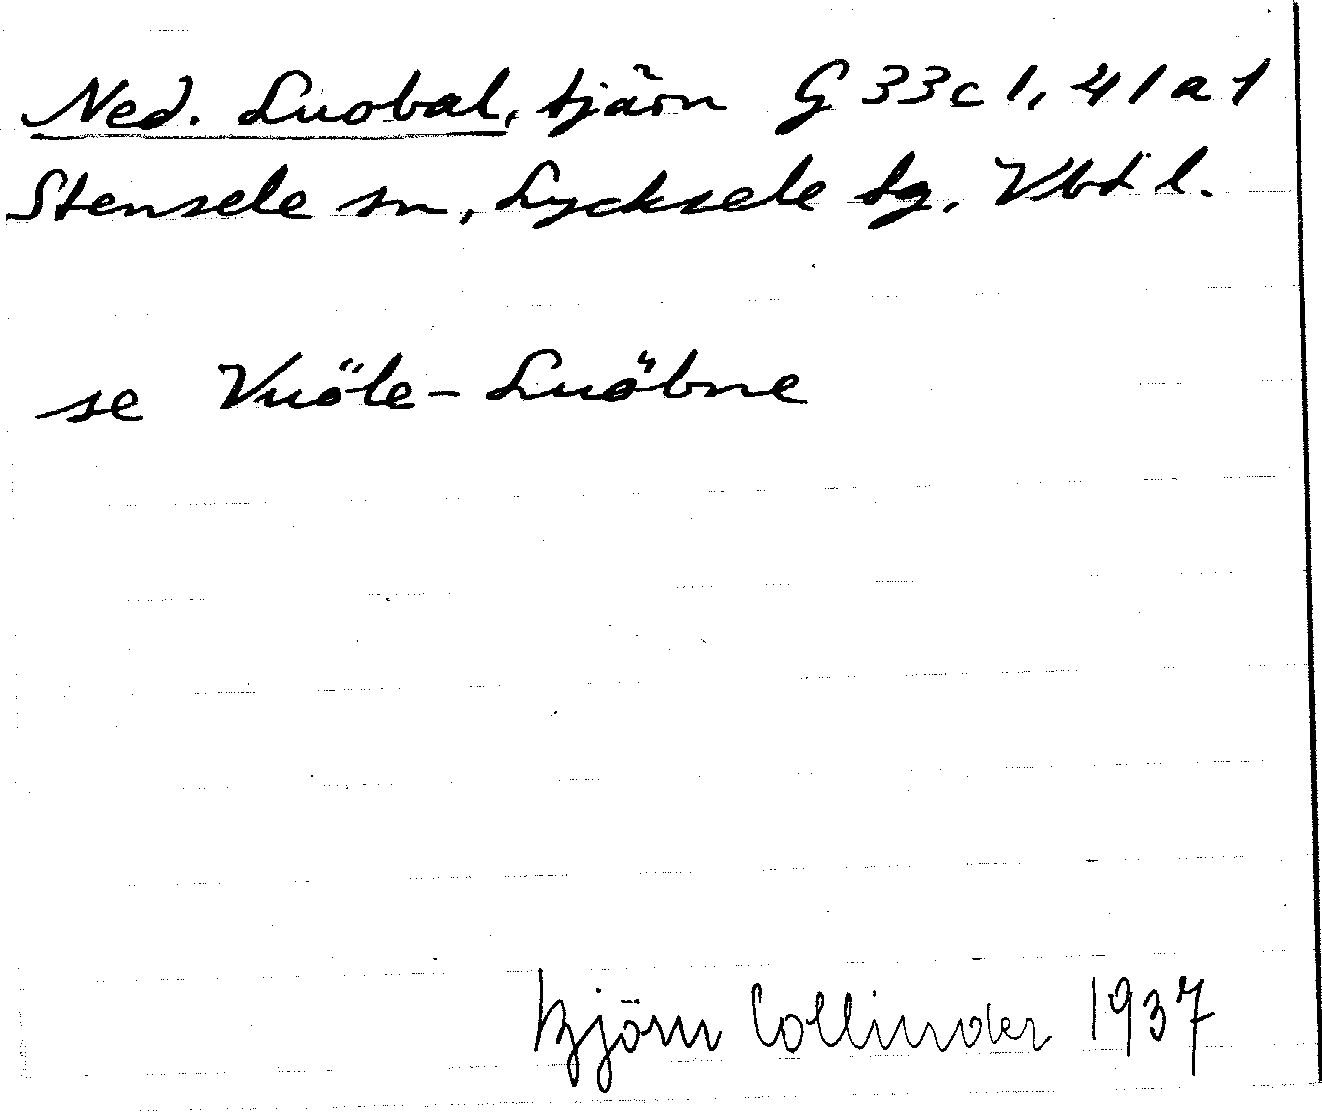 Ned. Luobal, tjärn G 33c1, 41a1
Stensele sn, Lycksele tg. Vbt l.
se Vuöle-Luöbne
Björn Collinder 1937